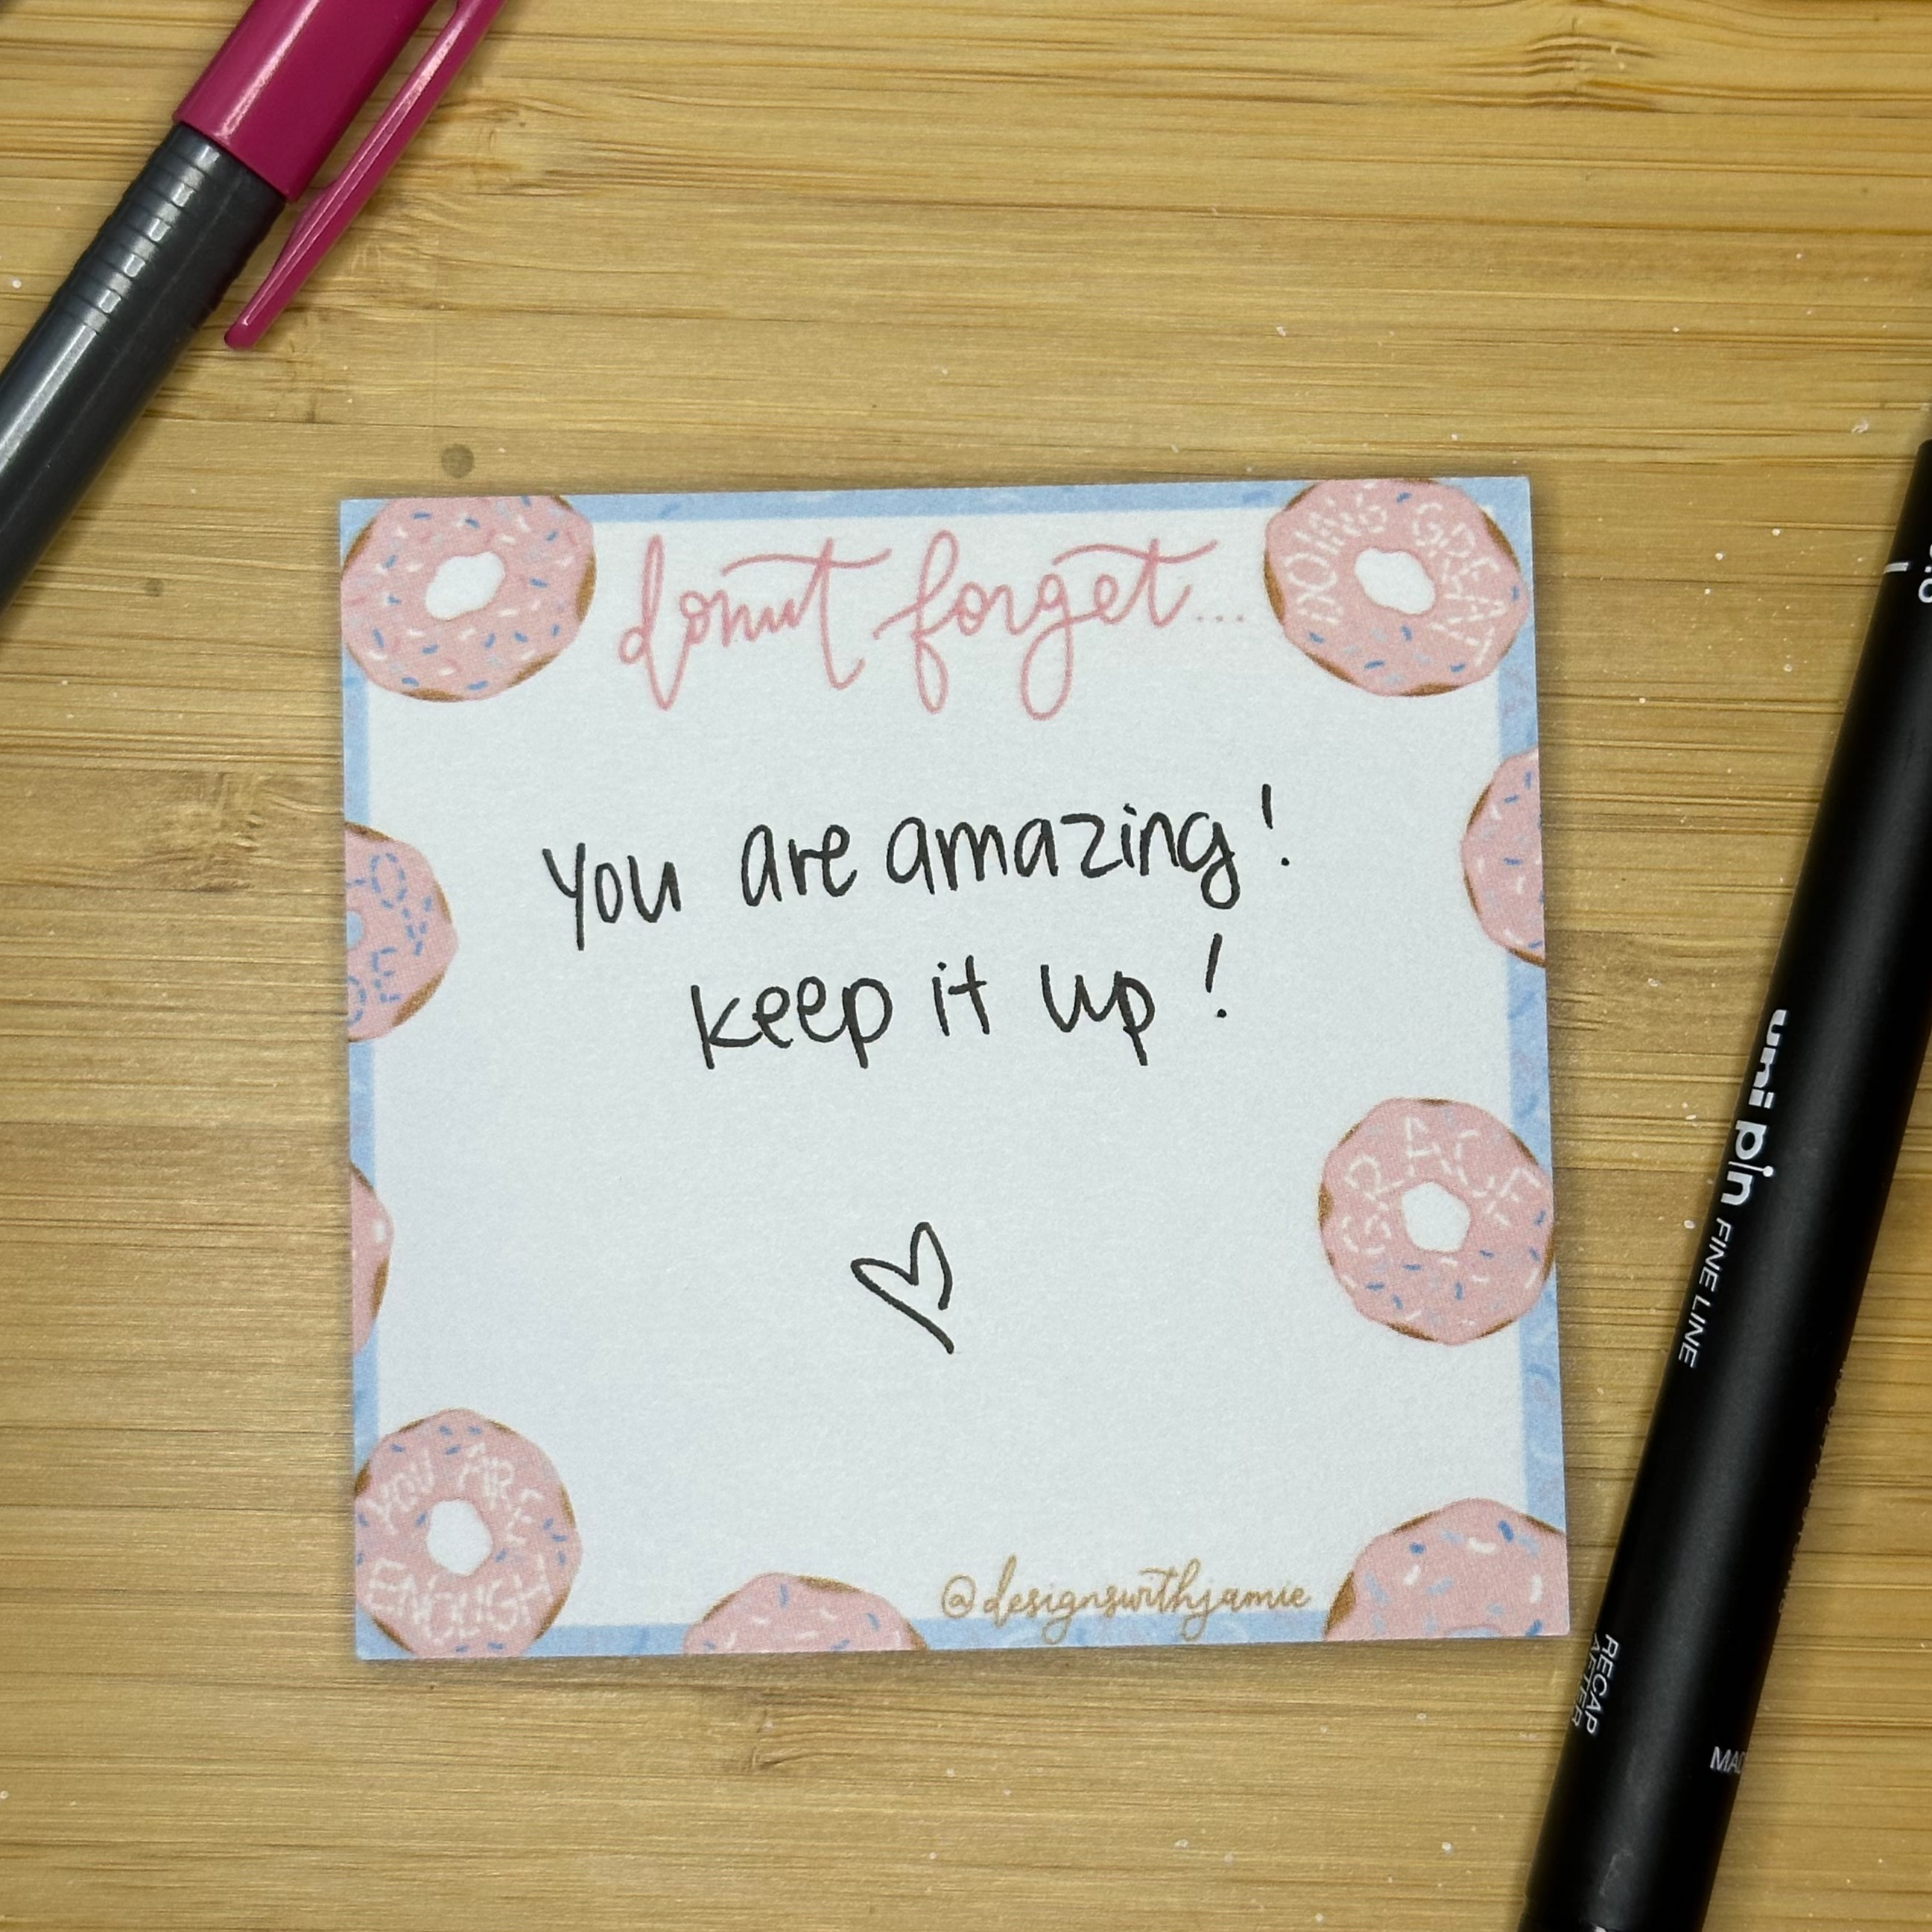 donut forget...
DOING GREAT
You are amazing!
keep it up!
GRACE
YOU ARE
ENOUGH
@designswithjamie
uni pin FINE LINE
RECAP
AFTER